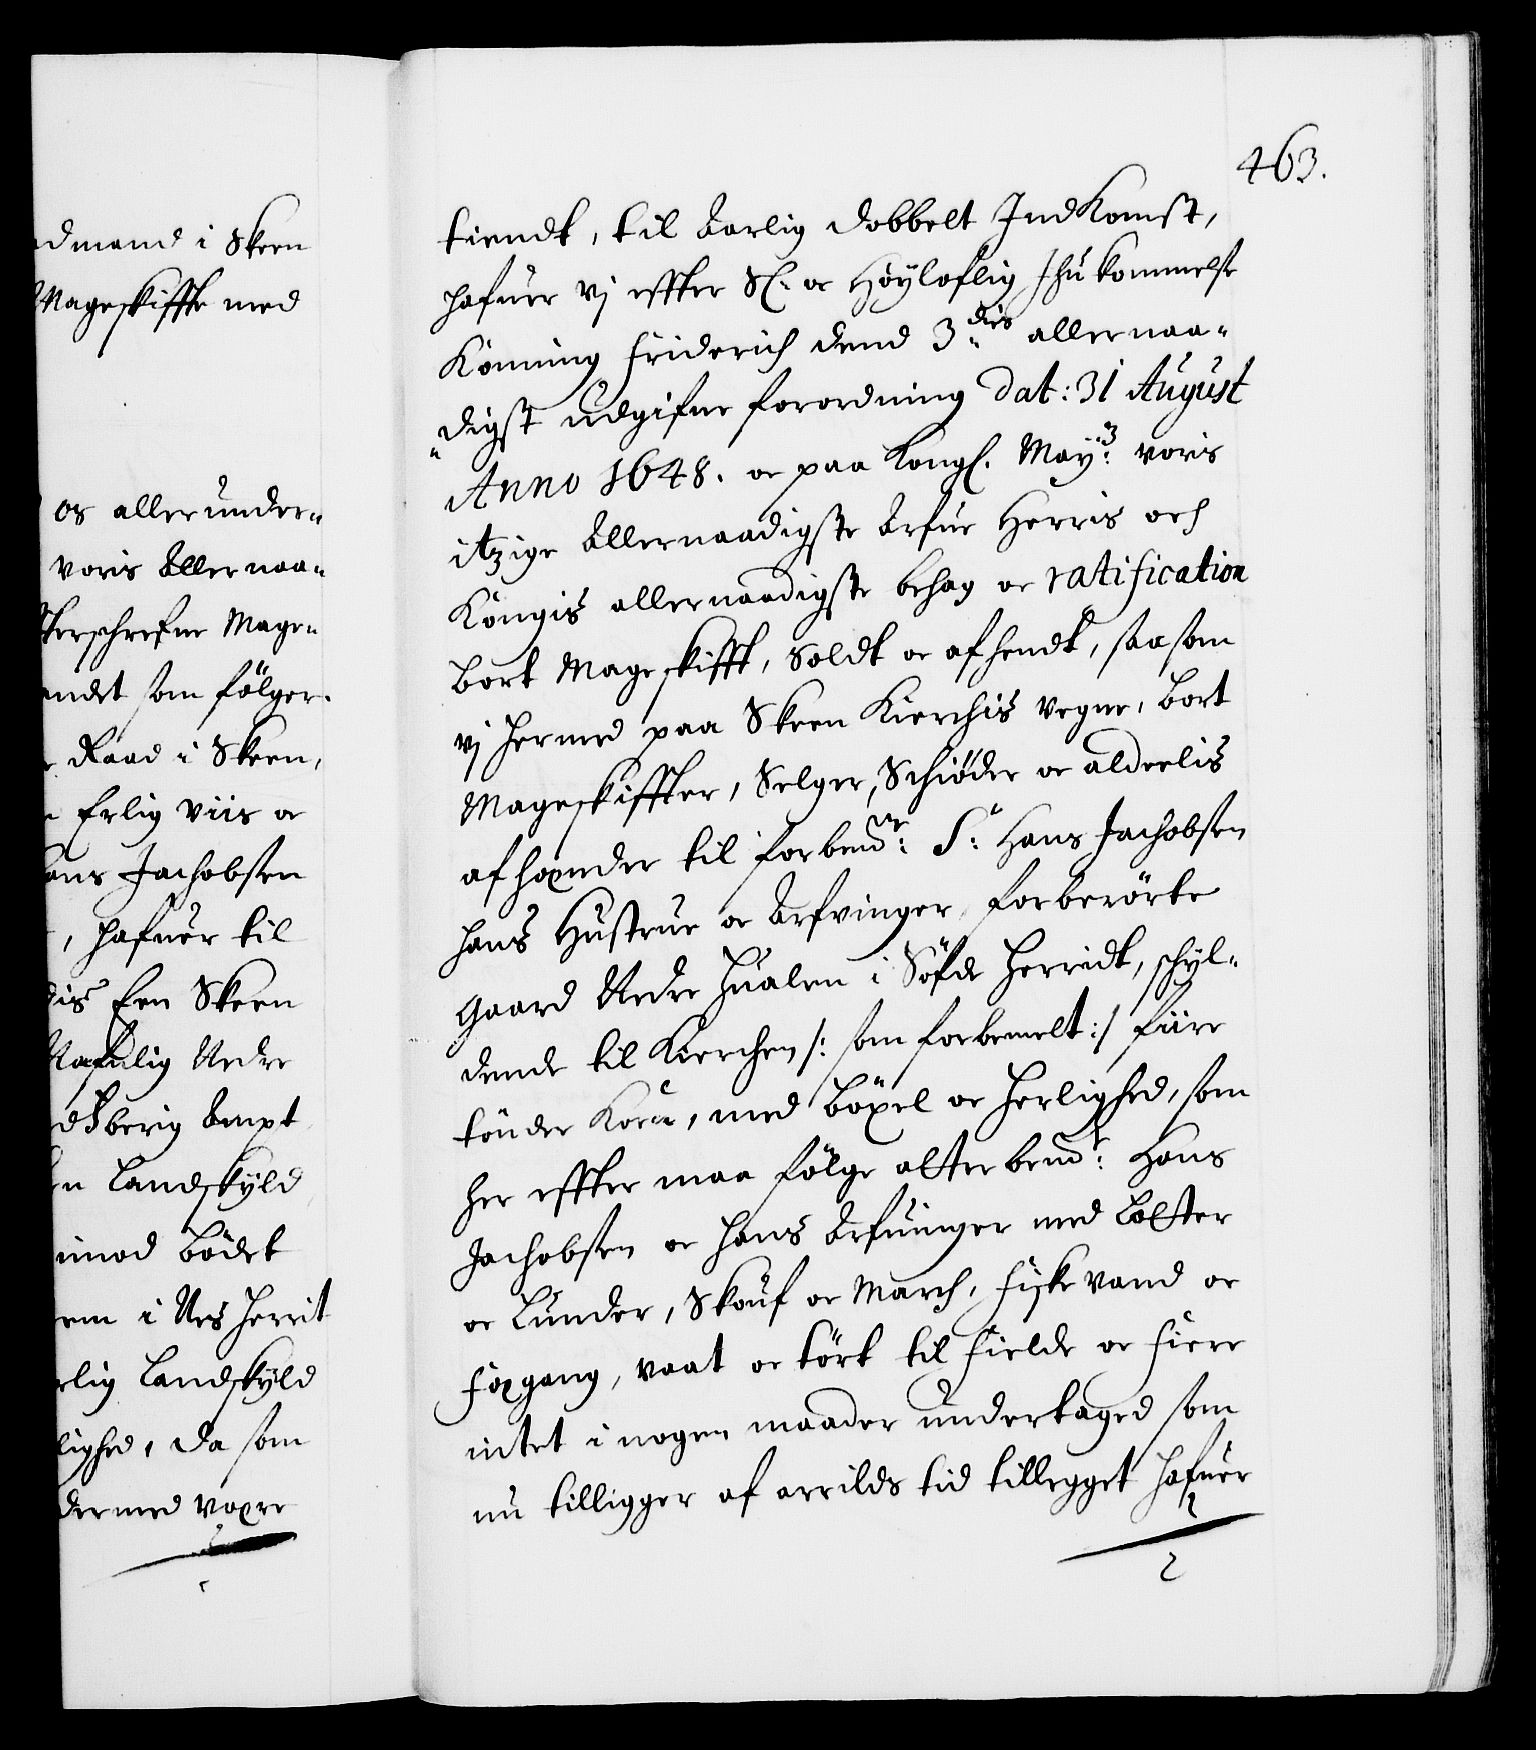 admand i Skeen
Mageskiffte med
os allerunder„
voris Allernaa„
terschrefne Mage„
andet som fölger.
Raad i Skeen,
Erlig viis oc
Hans Jachobsen
, hafuer til
dis Een Skeen
Nafnlig Nedre
dsberig Ampt
en Landskyld
imod bödet
em i Nes Herrit
rlig Landskyld
lighed, da som
dermed være
463.
tiendt, til Aarlig dobbelt Indkomst,
hafuer vj effter Sl. oc Höyloflig Ihukommelse
Konning Friderich dend 3dies allernaa„
„digst udgifne forordning Dat: 31 August
Anno 1648. oc paa Kongl. May:tz voris
itzige Allernaadigste Arfue Herris och
Kongis allernaadigste behag oc ratification
bort Mageskifft, Soldt oc afhendt, saasom
vj hermed paa Skeen Kierchis vegne, bort
Mageskiffter, Selger, Schiöder oc alderlis
afhænder til forbemte: Sr: Hans Jachobsen
hans Hustrue oc Arfvinger forberörte
Gaard Nedre Hualen i Söfde Herridt, schyl„
dende til Kierchen /: som forbemelt :/ fiire
tönder Korn, med böxel oc herlighed, som
her effter maa fölge altterbemt: Hans
Jachobsen oc hans Arfuinger med Lotter
oc Lunder, Skouf oc March, Fiskevand oc
Fægang, vaat oc tört til Fielde oc Fiere
intet i nogen maader undertaged som
nu tilligger af arrilds tid tillegget hafuer